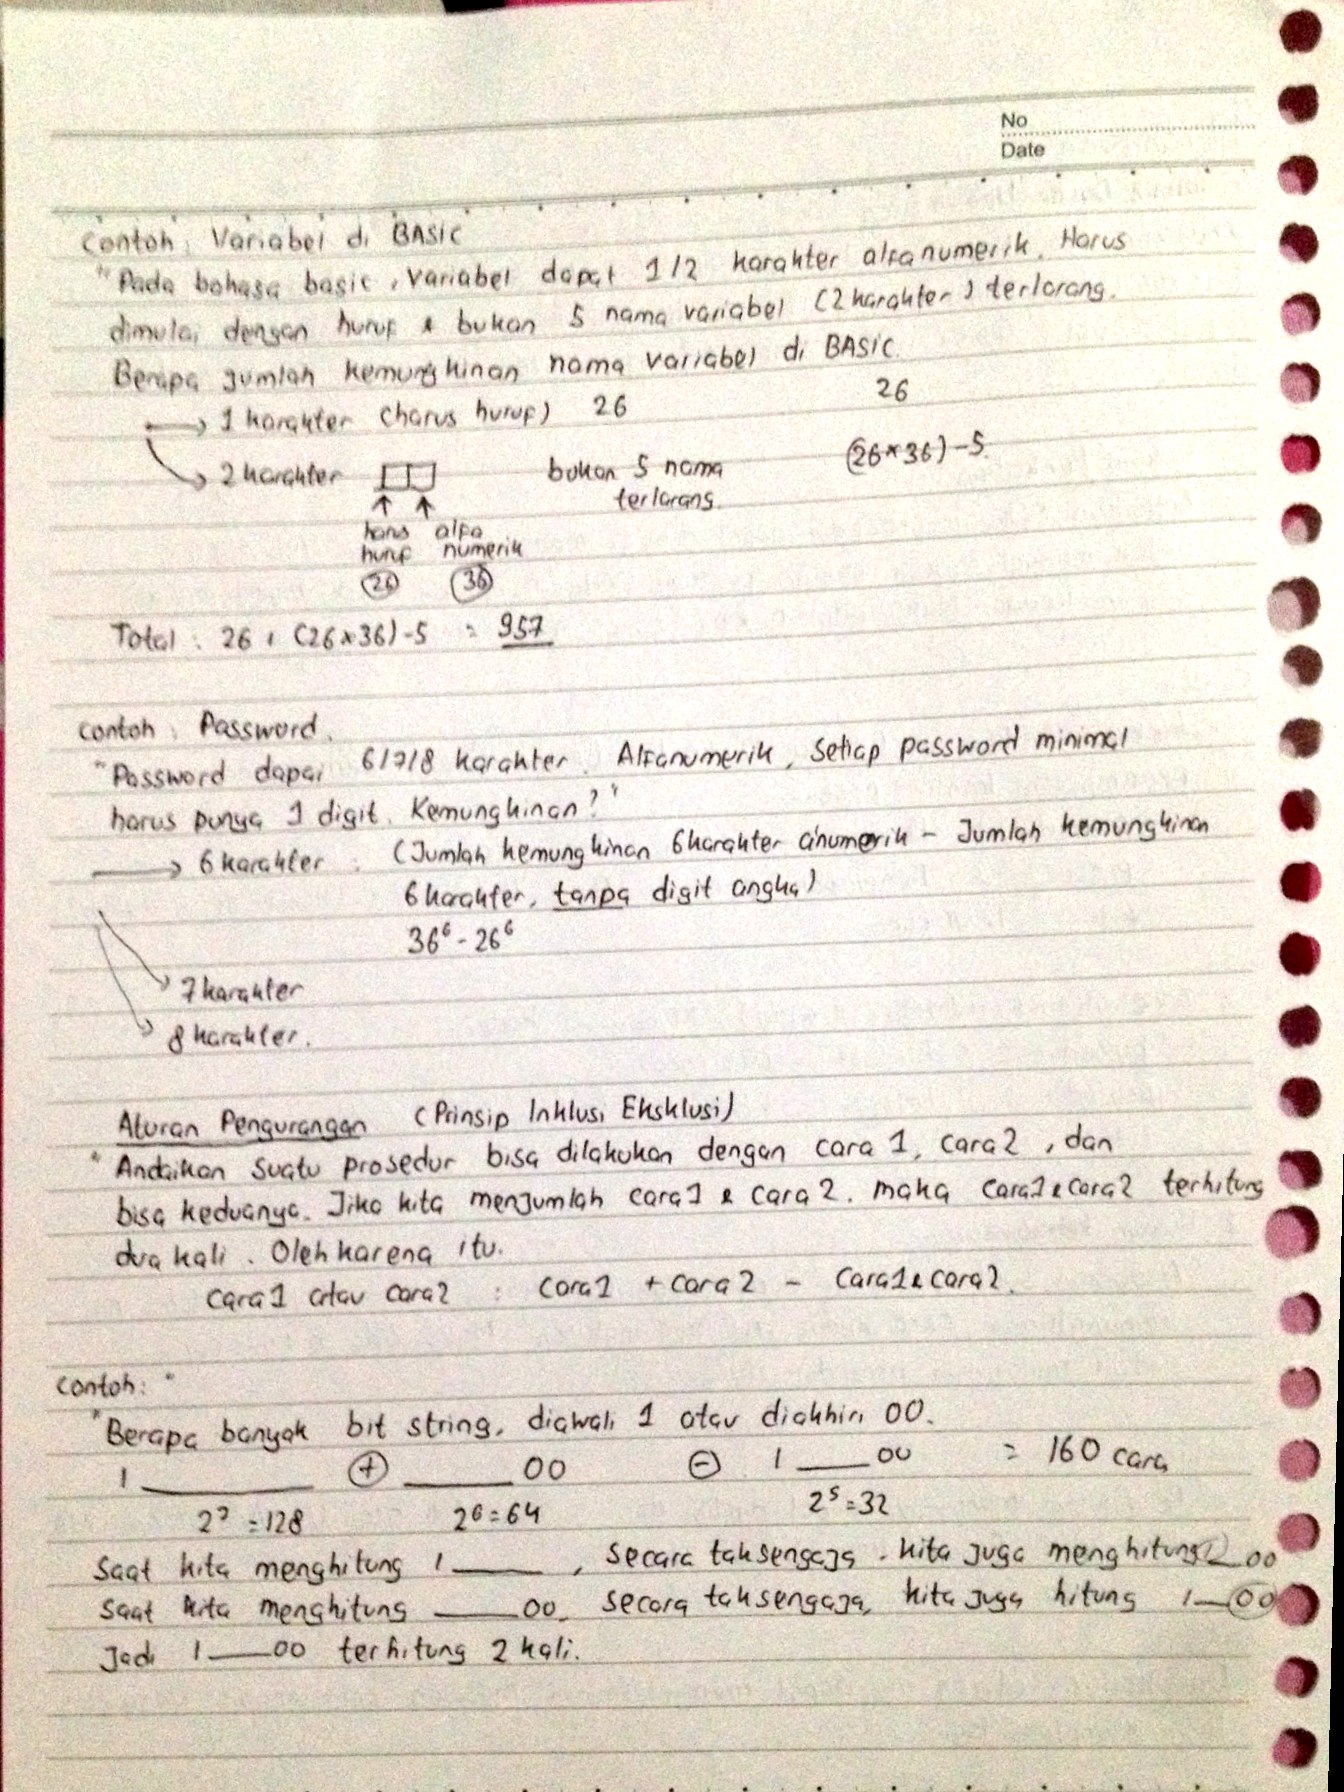 No
Date
Contoh : Variabel di BASIC
"Pada bahasa basic, variabel dapat 1/2 karakter alfanumerik. Harus
dimulai dengan huruf & bukan 5 nama variabel (2 karakter) terlarang.
Berapa jumlah kemungkinan nama variabel di BASIC.
→ 1 karakter (harus huruf) 26 26
→ 2 karakter bukan 5 nama (26×36)-5.
terlarang.
↑ ↑
harus alfa
huruf numerik
26 36
Total : 26 + (26×36)-5 = 957
Contoh : Password.
"Password dapat 6/7/8 karakter. Alfanumerik, setiap password minimal
harus punya 1 digit. Kemungkinan?"
→ 6 karakter : (Jumlah kemungkinan 6 karakter a'numerik - Jumlah kemungkinan
6 karakter, tanpa digit angka)
36⁶ - 26⁶
7 karakter
8 karakter.
Aturan Pengurangan (Prinsip Inklusi Eksklusi)
" Andaikan suatu prosedur bisa dilakukan dengan cara 1, cara 2, dan
bisa keduanya. Jika kita menjumlah cara 1 & cara 2. maka cara1 & cara2 terhitung
dua kali. Oleh karena itu.
cara 1 atau cara 2 : cara 1 + cara 2 - cara 1 & cara 2.
Contoh: "
"Berapa banyak bit string, diawali 1 atau diakhiri 00.
1 ______ + ______ 00 - 1 ____ 00 = 160 cara
2⁷ = 128 2⁶ = 64 2⁵ = 32
Saat kita menghitung 1 ____, secara tak sengaja. kita juga menghitung 1 __ 00
Saat kita menghitung ____ 00. secara tak sengaja, kita juga hitung 1 __ 00
Jadi 1 ____ 00 terhitung 2 kali.